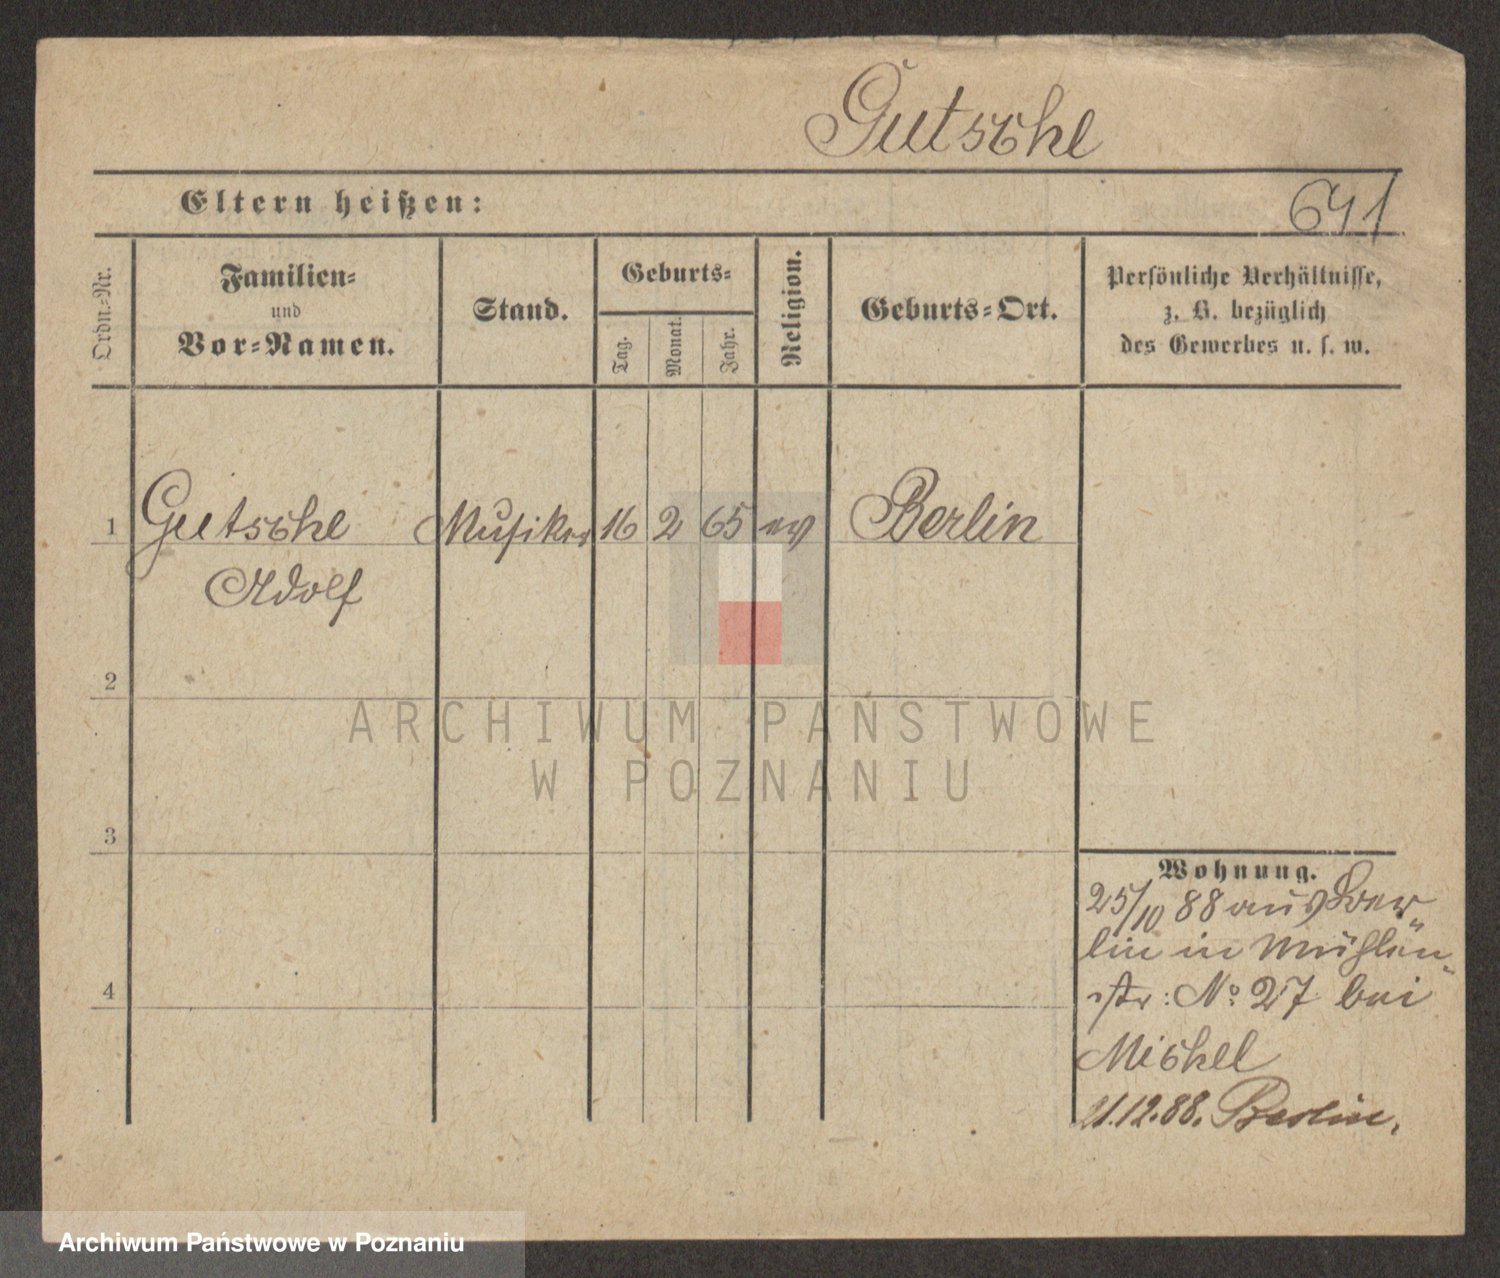 Gutsche
Eltern heißen:
641
Ordn.-Nr.
Familien-
und
Vor-Namen.
Stand.
Geburts-
Tag.
Monat.
Jahr.
Religion.
Geburts-Ort.
Persönliche Verhältnisse,
z. B. bezüglich
des Gewerbes u. s. w.
1 Gutsche Musiker 16 2 65 ev Berlin
Adolf
2
3
4
Wohnung.
25/10 88 aus Ber-
lin in Mühlen-
str: No 27 bei
Michel
21.12.88. Berlin.
ARCHIWUM PAŃSTWOWE
W POZNANIU
Archiwum Państwowe w Poznaniu